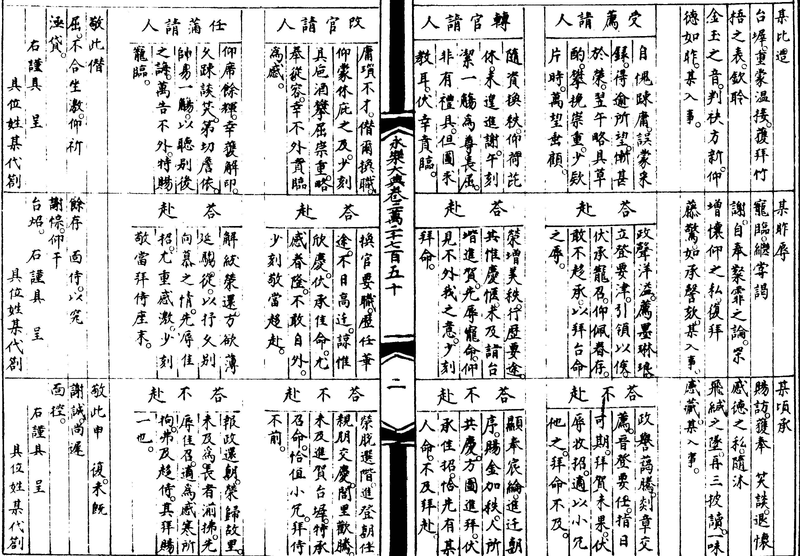 某比造
台墀。重蒙温接。獲拜竹
梧之表。欽聆
金玉之音。判袂方新。仰
德如昨。某入事。
受薦請人
自愧踈庸。誤蒙采
録。得逾所望。慚甚
於榮。翌午略具草
酌。攀挽崇重。少欵
片時。萬望垂顧。
轉官請人
隨資換秩。仰荷茈
休。未遑進謝。午刻
潔一觴。為尊長屈。
非有禮具。但圖求
教耳。伏幸賁臨。
改官請人
庸瑣不才。僭爾換職。
仰蒙休庇之及。少刻
具巵酒。攀屈崇重。略
奉從容。幸不外賁臨
為感。
任滿請人
仰席餘輝。幸獲解印。
久踈談笑。弟切詹依。
帥易一觴。以聴别後
之誨。萬告不外。特賜
寵臨。
敬此僭
屈。不合坐激。仰祈
涵貸。
右謹具 呈
具位姓某代劄
某昨辱
寵臨。繼穿謁
謝。自奉繫霏之論。杲
增懷仰之私。復拜
藤驚。如承謦欬。某入事。
答赴
政聲洋溢。薦墨琳琅。
立登要津。引領以俟。
伏承寵召。仰佩眷存。
敢不趍承。以拜台命
之辱。
答赴
榮增美秩。行歷要途。
共惟慶愜。未及詣台
堦進賀。先辱寵命。仰
見不外我之意。少刻
拜命。
答赴
換官要職。歷任華
途。不日高迁。諒惟
欣慶。伏承佳命。尤
感眷隆。不敢自外。
少刻敬當趍赴。
答赴
解紱榮還。方欲薄
逅騶從。以抒久别
向慕之情。先辱佳
招。尤重感激。少刻
敬當拜侍座末。
餘存 面侍。以究
謝悰。仰干
台炤。右謹具 呈
具位姓某代劄
某頃承
賜訪。獲奉 笑談。退懷
感德之私。隨沐
飛緘之墜。再三披讀。味
感藏。某入事。
答不赴
政譽藹騰。刻章交
薦。晉登要任。指日
可期。拜賀未果。伏
辱收招。適以小冗
他之。拜命不及。
答不赴
顯奉宸綸。進迁朝
序。賜金加秩。人所
共慶。方圖進拜。伏
承佳招。恰先有某
人命。不及拜赴。
答不赴
榮脫選階。進登朝任。
親朋交慶。閭里歡騰。
未及進賀台墀。特承
召命。恰值小冗。拜侍
不前。
答不赴
報政還朝。榮歸故里。
未及為長者湔拂。先
辱佳召。適為感寒所
拘。弗及趍侍。具拜賜
一也。
敬此申 復。未旣
謝誠。尚遲
面控。
右謹具 呈
具位姓某代劄
永樂大典卷二萬二千七百五十
二